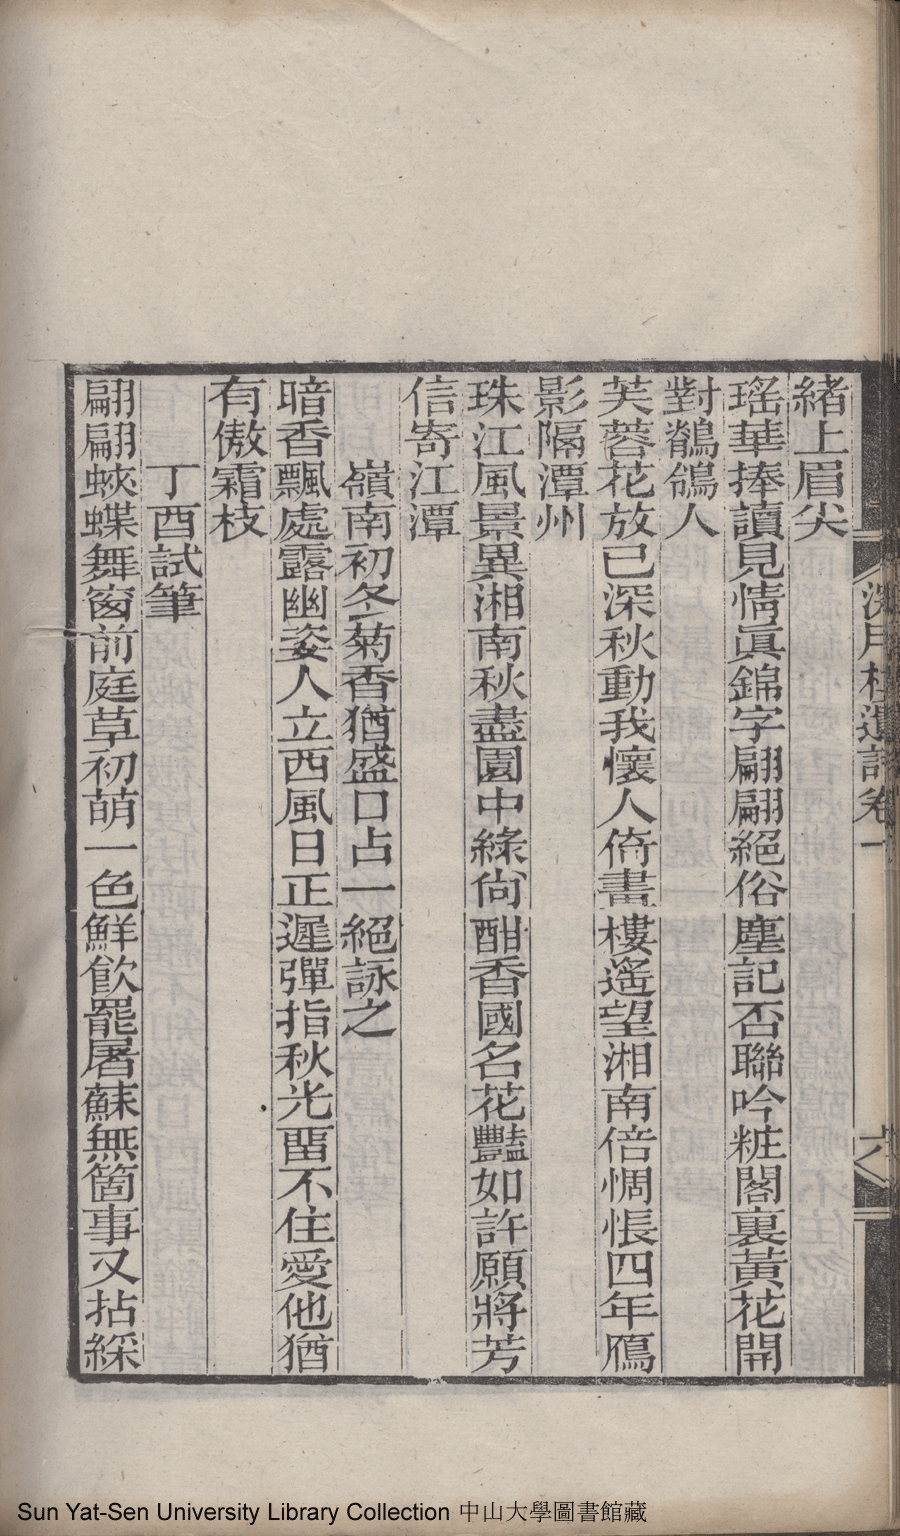 緒上眉尖
瑤華捧讀見情眞錦字翩翩絕俗塵記否聯吟粧閣裏黃花開
對鶺鴒人
芙蓉花放已深秋動我懷人倚畫樓遙望湘南倍惆悵四年鴈
影隔潭州
珠江風景異湘南秋盡園中綠尙酣香國名花豔如許願將芳
信寄江潭
嶺南初冬菊香猶盛口占一絕詠之
暗香飄處露幽姿人立西風日正遲彈指秋光畱不住愛他猶
有傲霜枝
丁酉試筆
翩翩蛺蝶舞窗前庭草初萌一色鮮飮罷屠蘇無箇事又拈綵
月 遺詩卷一
六
Sun Yat-Sen University Library Collection 中山大學圖書館藏